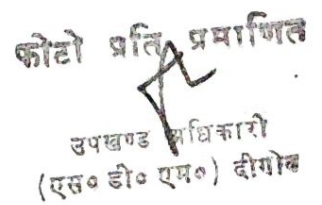 फोटो प्रति प्रमाणित
उपखण्ड अधिकारी
(एस० डी० एम०) दीगोद